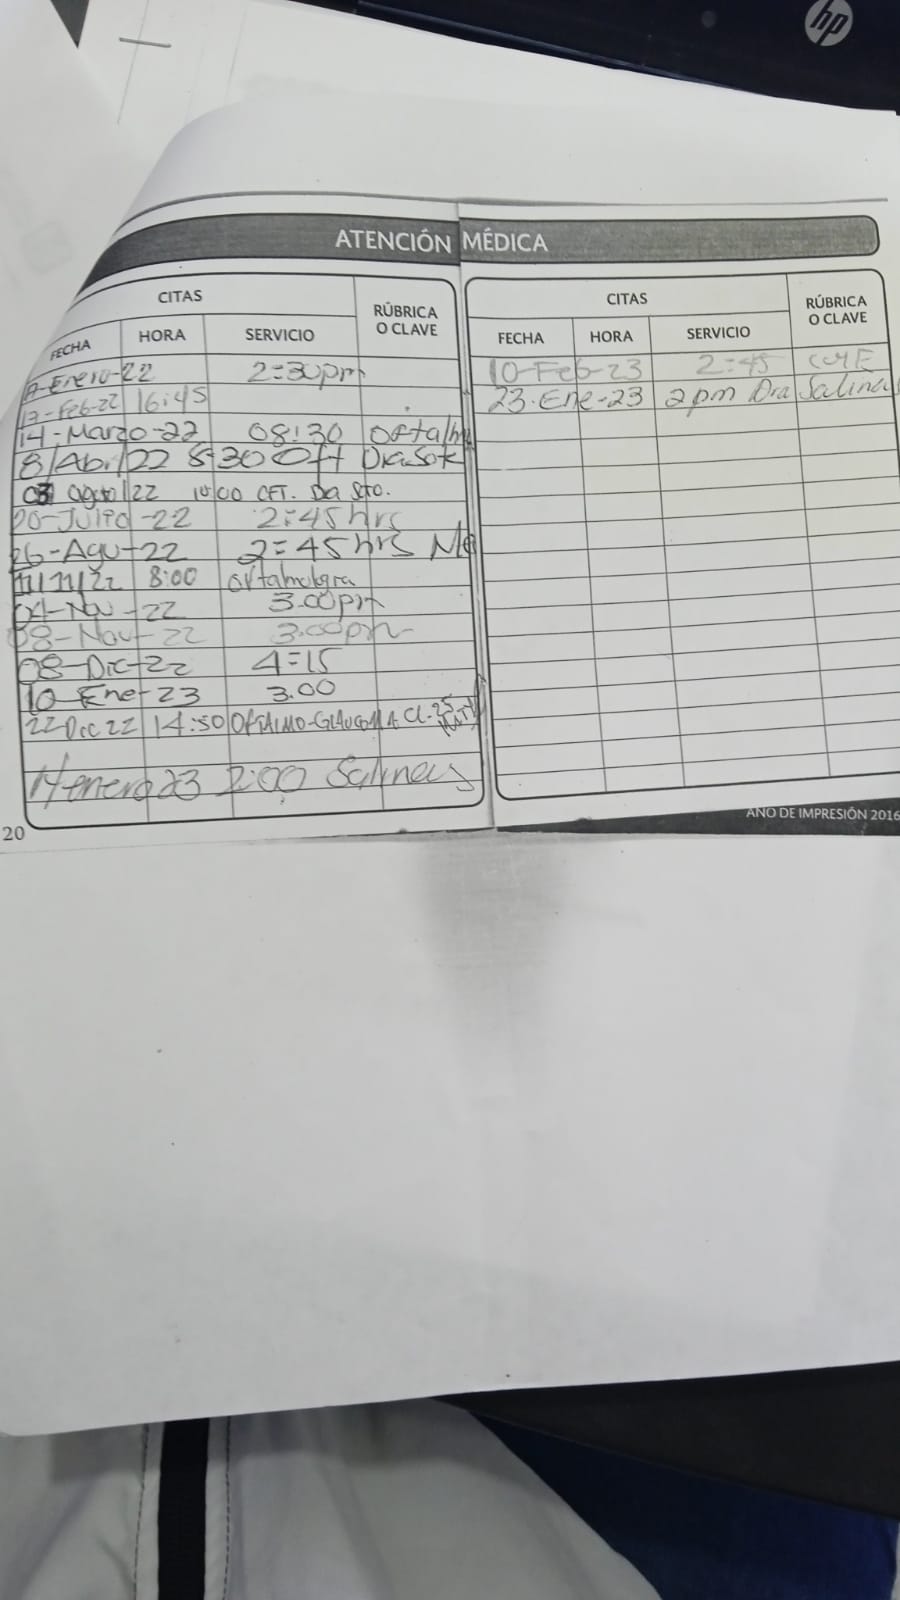 hp
ATENCIÓN MÉDICA
CITAS
RÚBRICA O CLAVE
FECHA HORA SERVICIO
-Enero-22 2=30pm
17-Feb-22 16:45
14-Marzo-22 08:30 Oftalm
8/Abr/22 8:30 Oft Dra Soto
03 agosto/22 OFT. Da Sto.
20-Julio-22 2=45 hrs
26-Agu-22 2=45 hrs
11/11/22 8:00 oftalmolgia
04-Nov-22 3.00pm
08-Nov-22 3.00pm
08-Dic-22 4=15
10 Ene-23 3.00
22 Dic 22 14:50 OFTALMO-GLAUCOMA Cl-25
enero 23 2:00 Salinas
20
CITAS
RÚBRICA O CLAVE
FECHA HORA SERVICIO
10-Feb-23 2=45
23-Ene-23 2pm Dra Salinas
AÑO DE IMPRESIÓN 2016